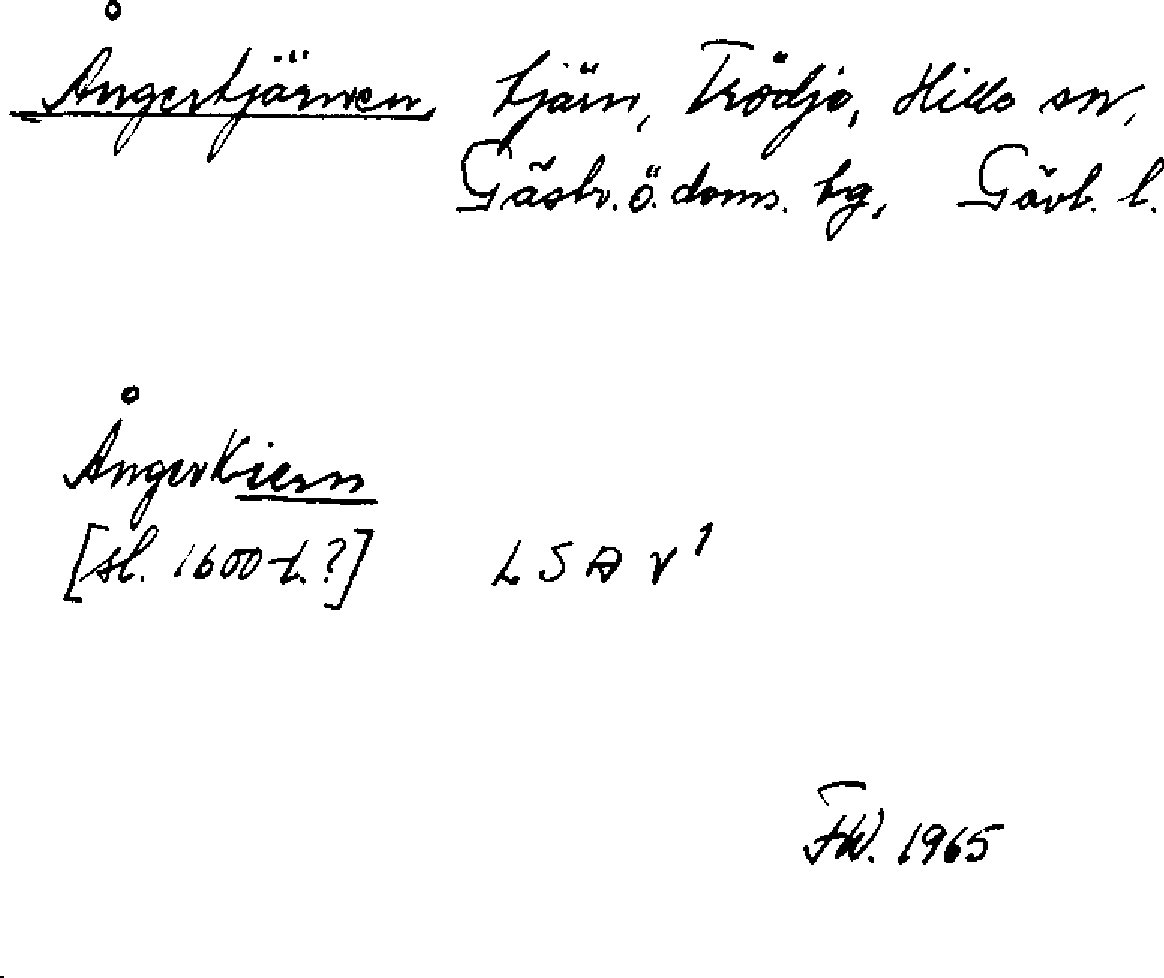 Ångertjärnen, tjärn, Trödje, Hille sn,
Gästr. ö. doms. tg, Gävl. l.
ÅngerKiern
[sl. 1600-t.?] LSA v¹
FW. 1965